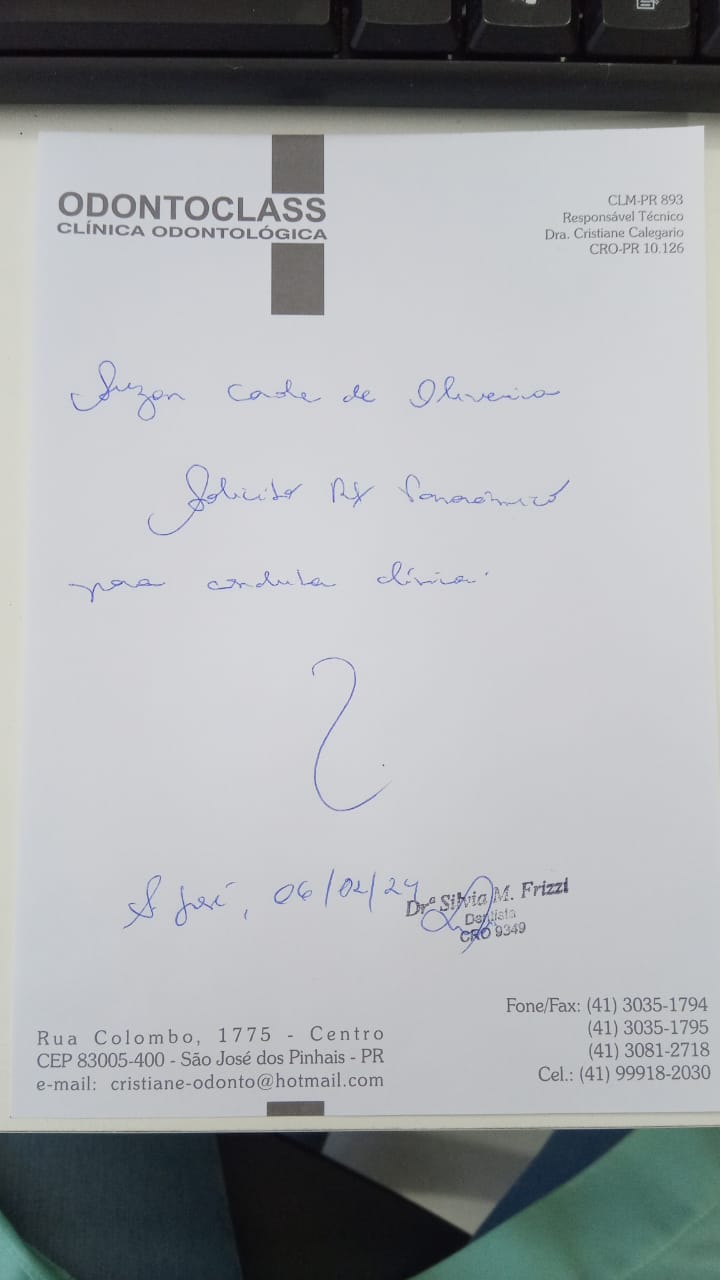 ODONTOCLASS
CLÍNICA ODONTOLÓGICA
CLM-PR 893
Responsável Técnico
Dra. Cristiane Calegario
CRO-PR 10.126
Suzan de Oliveira
Solicito RX Panorâmico
para conduta clínica.
S José, 06/02/24
Drª Silvia M. Frizzi
Dentista
CRO 9349
Rua Colombo, 1775 - Centro
CEP 83005-400 - São José dos Pinhais - PR
e-mail: cristiane-odonto@hotmail.com
Fone/Fax: (41) 3035-1794
(41) 3035-1795
(41) 3081-2718
Cel.: (41) 99918-2030